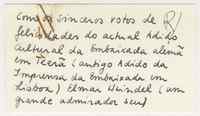 Com os sinceros votos de R/
felicidades do actual Adido
Cultural da Embaixada alemã
em Teerã (antigo Adido da
Imprensa da Embaixada em
Lisboa) Elmar (um
grande admirador seu)